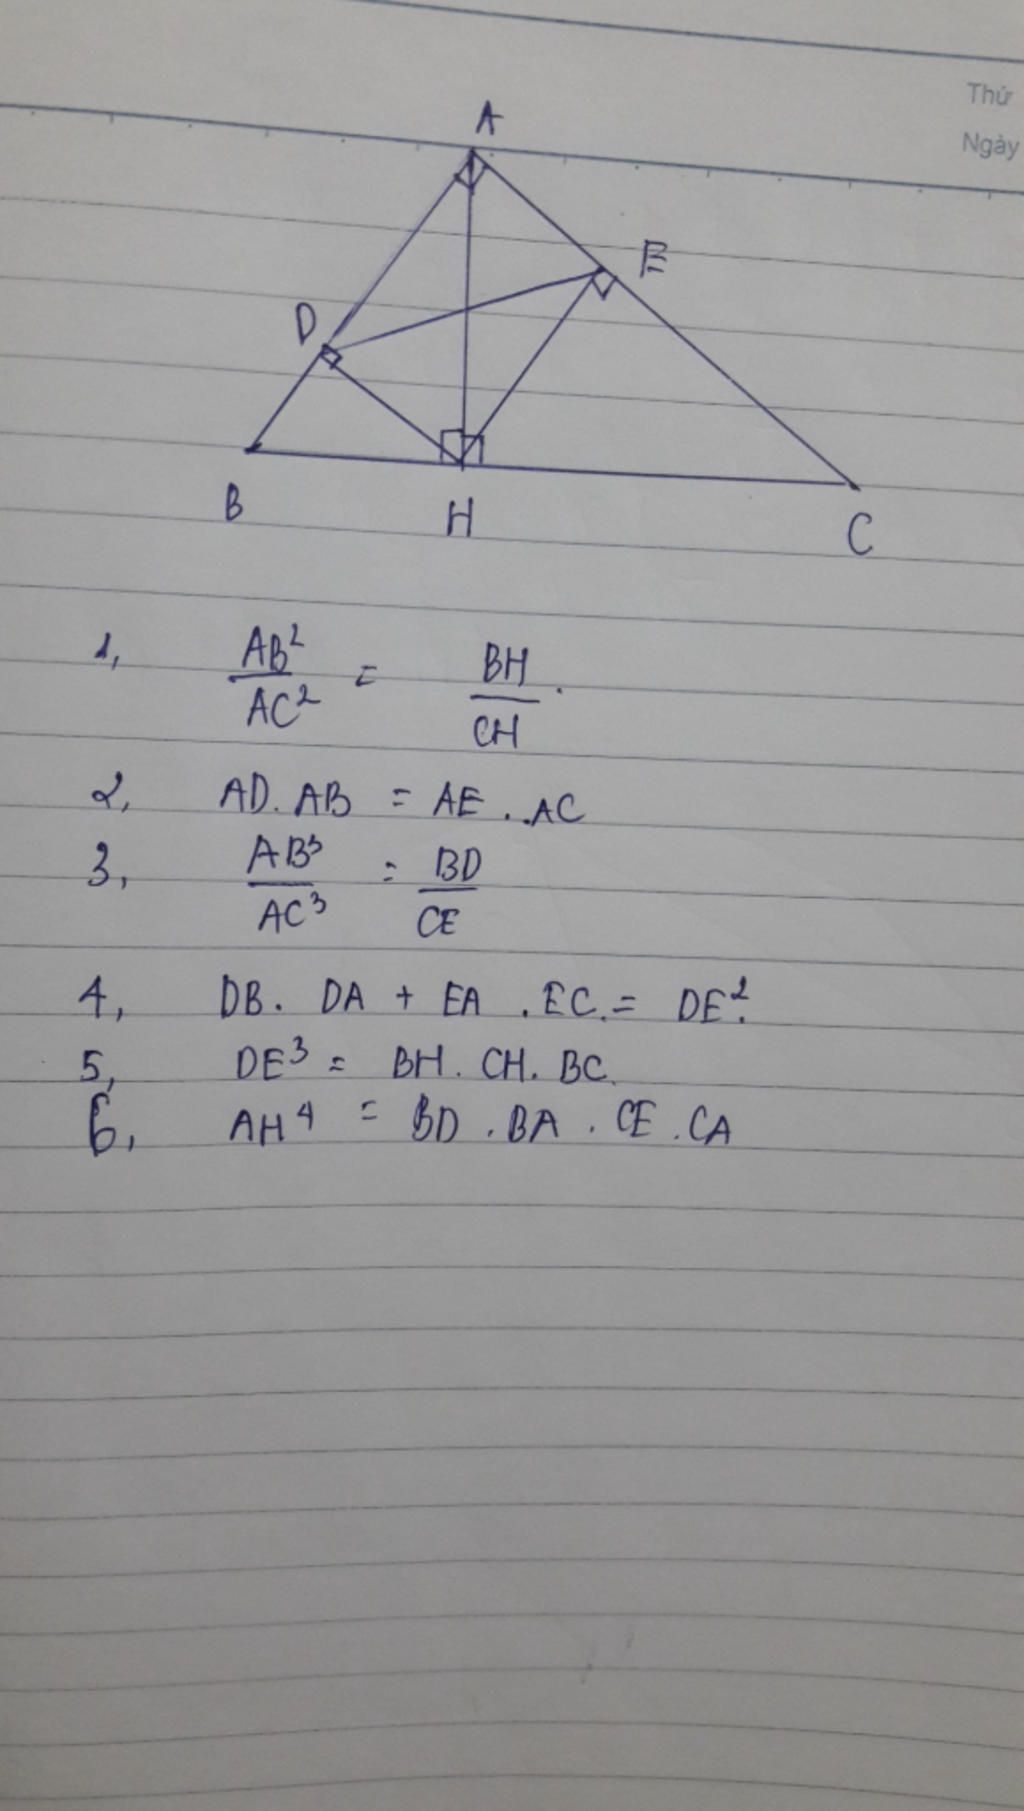 Thứ
Ngày
A
D
E
B
H
C
1, AB²/AC² = BH/CH.
2, AD. AB = AE . . AC
3, AB³/AC³ = BD/CE
4, DB. DA + EA . EC. = DE².
5, DE³ = BH. CH. BC.
6, AH⁴ = BD . BA . CE . CA